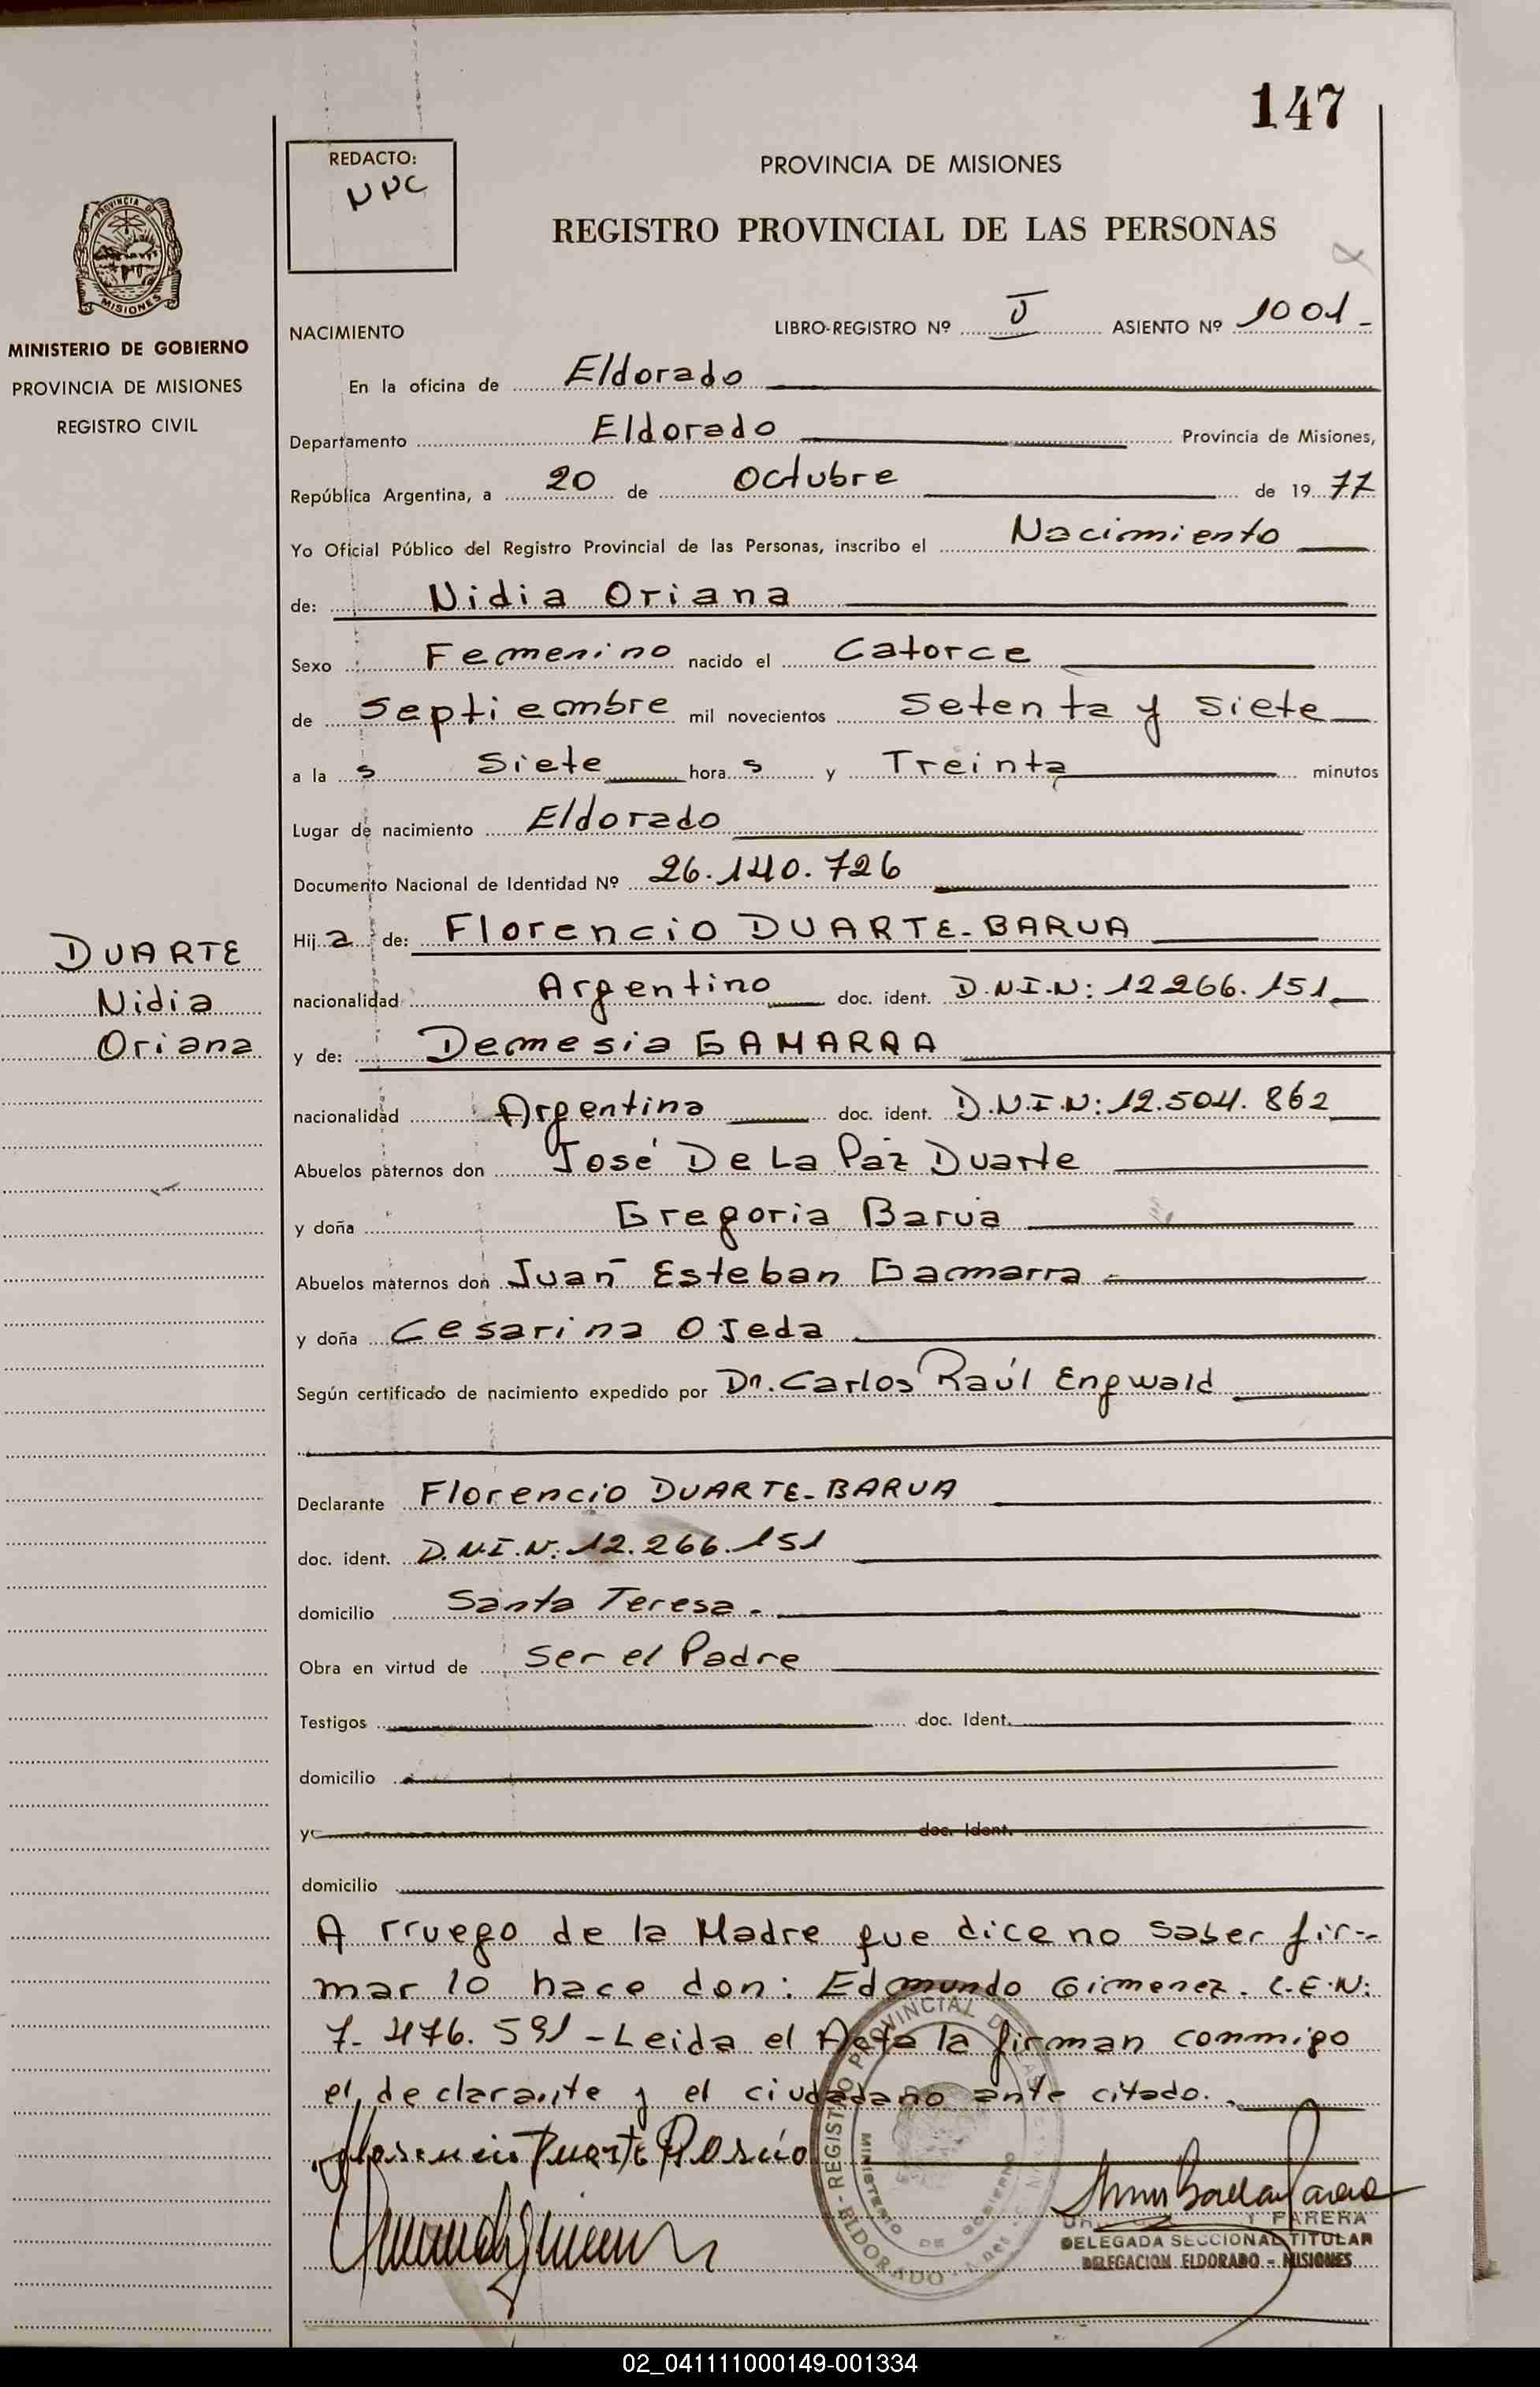 147
REDACTO:
PROVINCIA DE MISIONES
REGISTRO PROVINCIAL DE LAS PERSONAS
MISIONES
MINISTERIO DE GOBIERNO
PROVINCIA DE MISIONES
REGISTRO CIVIL
NACIMIENTO LIBRO-REGISTRO Nº ASIENTO Nº 1001-
En la oficina de Eldorado
Departamento Eldorado Provincia de Misiones,
República Argentina, a 20 de Octubre de 1977
Yo Oficial Público del Registro Provincial de las Personas, inscribo el Nacimiento
de: Nidia Oriana
Sexo Femenino nacido el Catorce
de Septiembre mil novecientos Setenta y Siete
a la s Siete hora s y Treinta minutos
Lugar de nacimiento Eldorado
Documento Nacional de Identidad Nº 26.140.726
DUARTE
Nidia
Oriana
Hija de: Florencio DUARTE-BARUA
nacionalidad Argentino doc. ident. D.N.I.N: 12266.151
y de: Demesia GAMARRA
nacionalidad Argentina doc. ident. D.N.I.N: 12.504.862
Abuelos paternos don José De La Paz Duarte
y doña Gregoria Barua
Abuelos maternos don Juan Esteban Gamarra
y doña Cesarina OJeda
Según certificado de nacimiento expedido por Dr. Carlos Raúl Engwald
Declarante Florencio DUARTE-BARUA
doc. ident. D.N.I.N: 12.266.151
domicilio Santa Teresa.
Obra en virtud de Ser el Padre
Testigos doc. Ident.
domicilio
y doc. Ident.
domicilio
A rruego de la Madre que dice no saber fir-
mar lo hace don: Edmundo Gimenez. L.E.N:
7.476.591 - Leida el Acta la firman conmigo
el declarante y el ciudadano ante citado.
REGISTRO PROVINCIAL DE LAS
MINISTERIO DE GOBIERNO
ELDORADO
Y PARERA
DELEGADA SECCIONAL TITULAR
DELEGACION ELDORADO - MISIONES
02_041111000149-001334